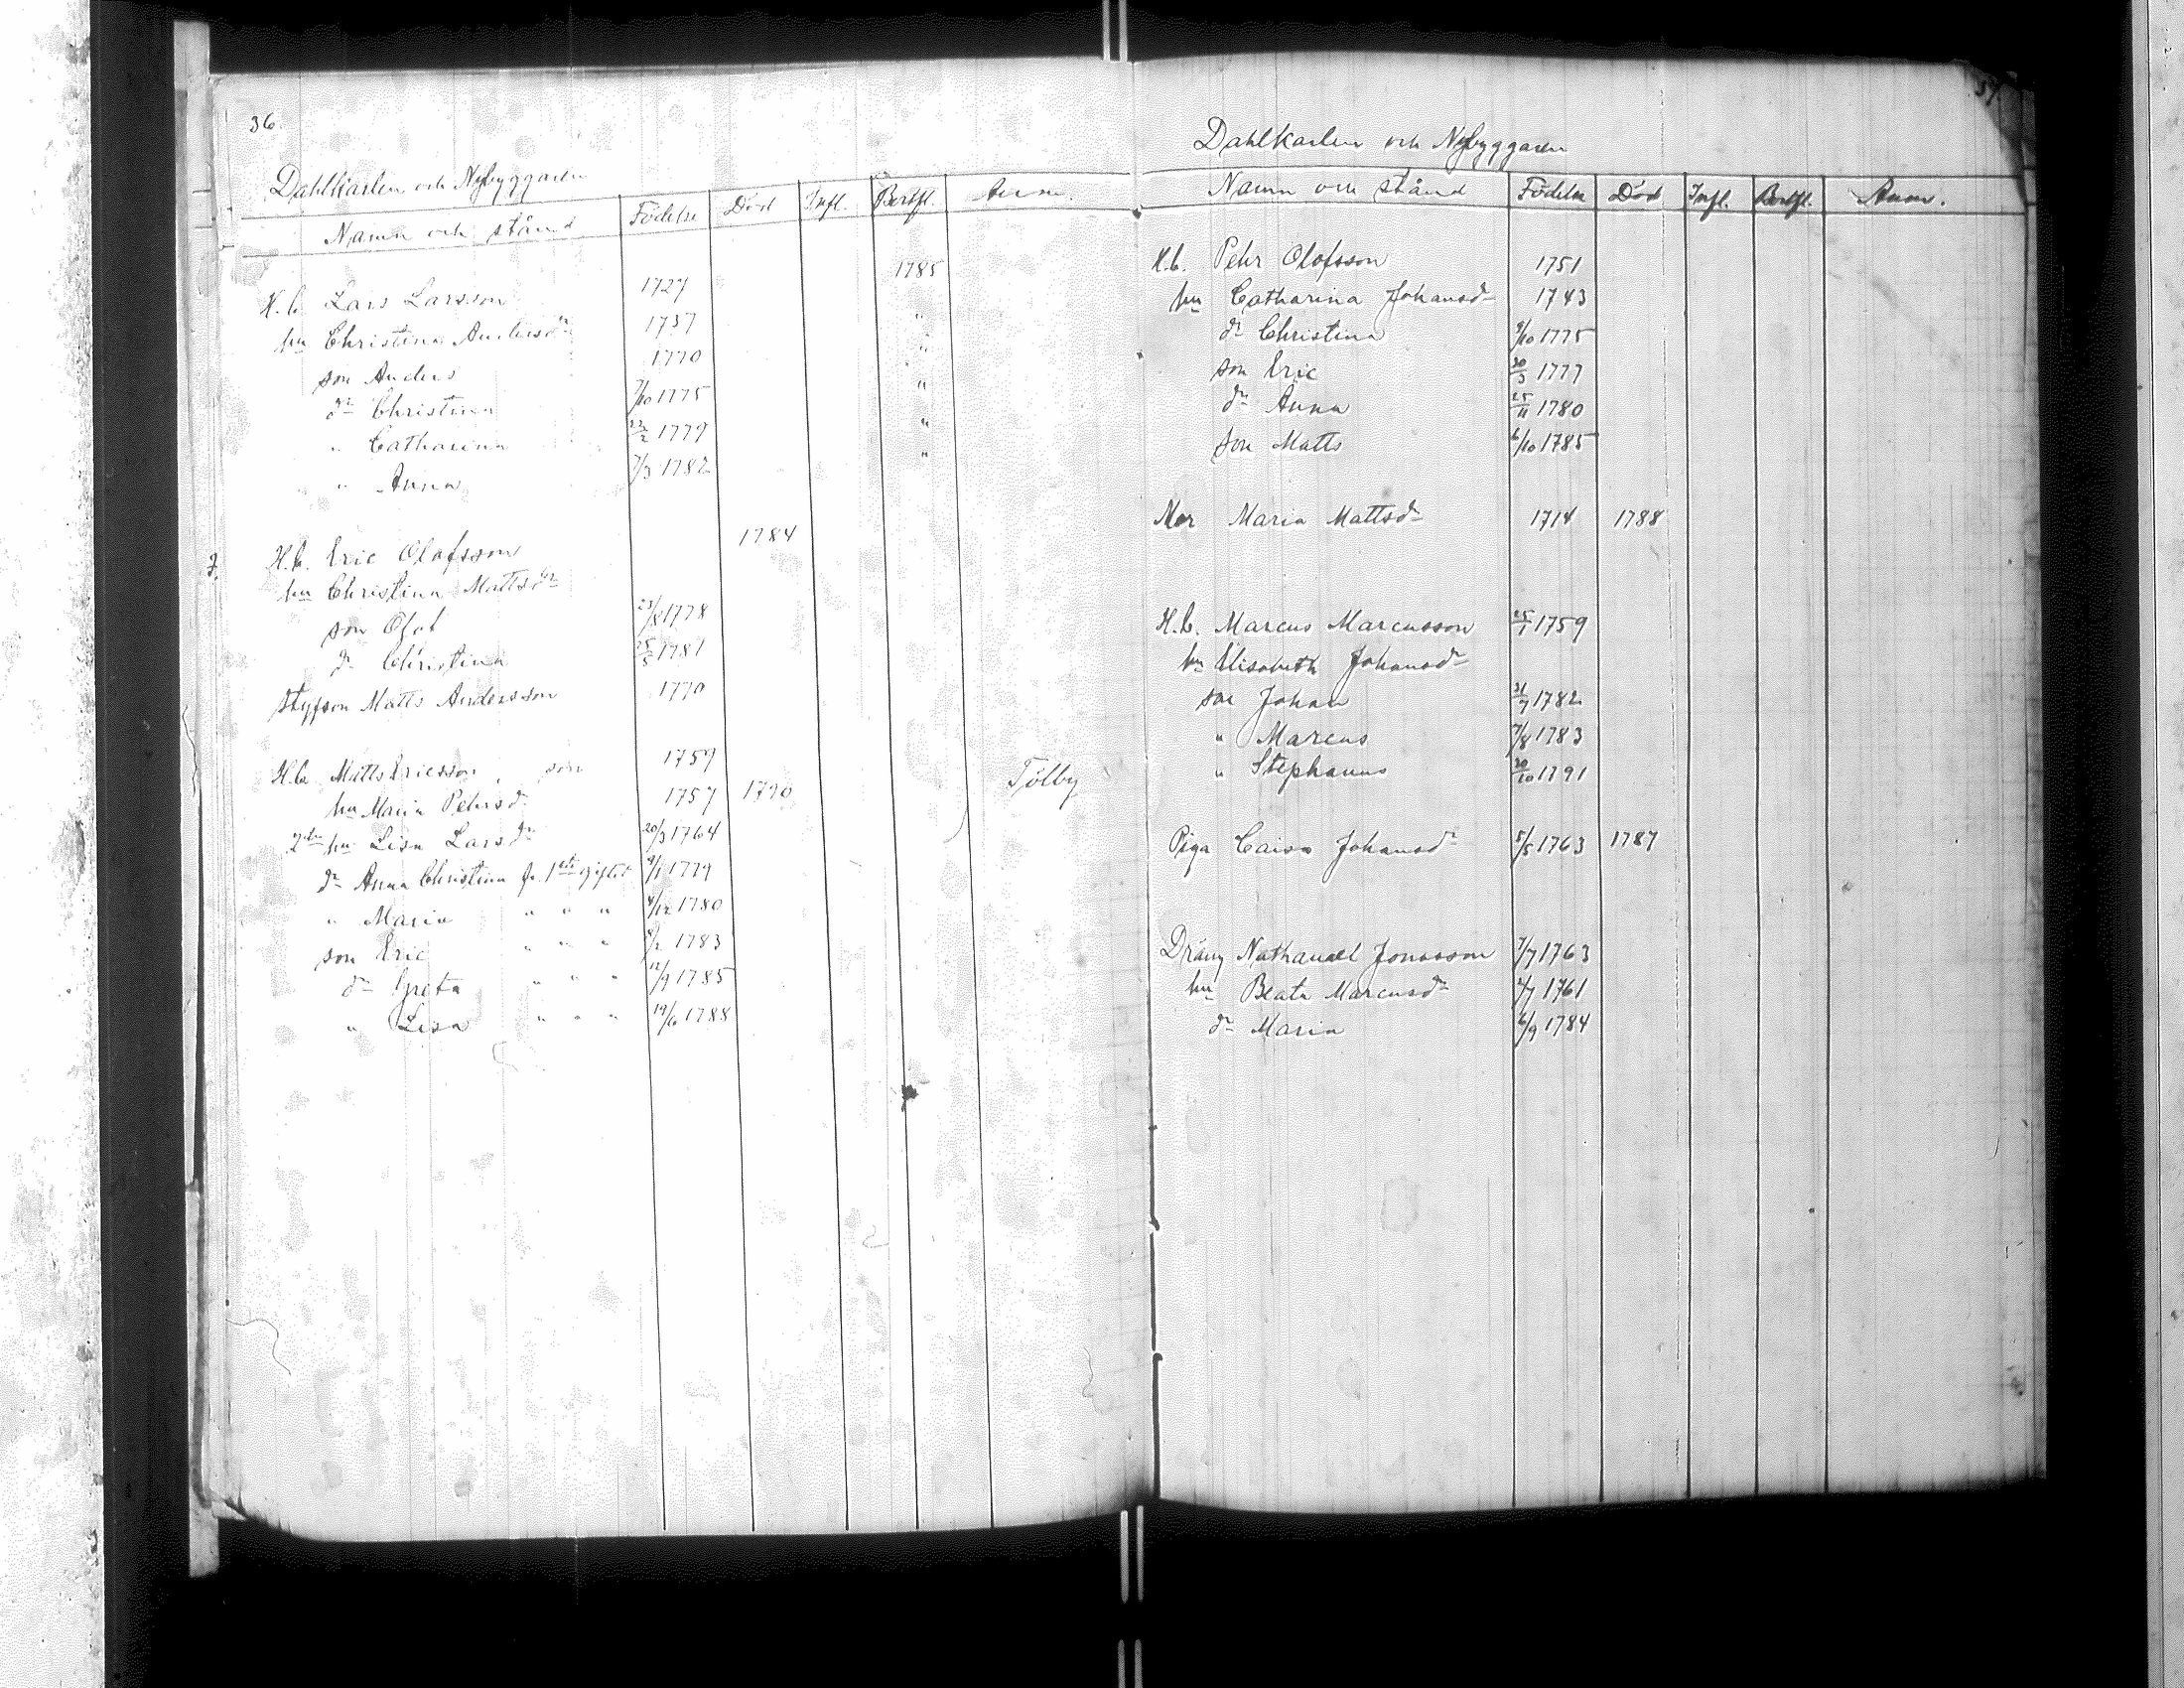 36.
Dahlkarlen och Nybyggaren
Namn och stånd Födelse Död Infl. Bortfl. Anm.
H.b. Lars Larsson 1727 1785
hu Christina Andersdr 1737 "
son Anders 1770 "
dr Christina 7/10 1775 "
" Catharina 22/2 1779 "
" Anna 7/3 1782 "
H.b. Eric Olofsson 1784
hu Christina Mattsdr
son Olof 23/8 1778
dr Christina 25/5 1781
Styfson Matts Andersson 1770
H.b. Matts Ericsson, son 1759
hu Maria Pehrsdr 1757 1790 Tölby
2dra hu Lisa Larsdr 20/3 1764
dr Anna Christina fr. 1sta giftet 9/1 1779
" Maria " " " 4/12 1780
son Eric " " " 8/2 1783
dr Greta " " " 12/9 1785
" Lisa " " " 19/6 1788
37.
Dahlkarlen och Nybyggaren
Namn och stånd Födelse Död Infl. Bortfl. Anm.
H.b. Pehr Olofsson 1751
hu Catharina Johansdr 1743
dr Christina 9/10 1775
son Eric 30/3 1777
dr Anna 25/11 1780
son Matts 6/10 1785
Mor Maria Mattsdr 1714 1788
H.b. Marcus Marcusson 25/1 1759
hu Elisabeth Johansdr
son Johan 31/7 1782
" Marcus 7/8 1783
" Stephanus 30/10 1791
Piga Caisa Johansdr 5/5 1763 1787
Dräng Nathanael Jonasson 7/7 1763
hu Beata Marcusdr 2/7 1761
dr Maria 6/9 1784